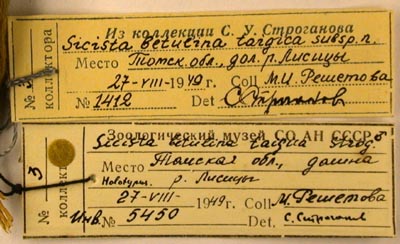 Из коллекции С. У. Строганова
Sicista betulina taigica subsp. n.
Место Томск. обл., дол. р. Лисицы
27-VIII-1949 Coll М.И. Решетова
№ 1412 Det Строганов
№ 3 коллектора
Зоологический музей СО АН СССР
Sicista betulina taigica Strog. ♂
Место Томская обл., долина
р. Лисицы
27-VIII-1949 Coll. М. Решетова
Инв. № 5450 Det. С. Строганов
№ 3 коллект